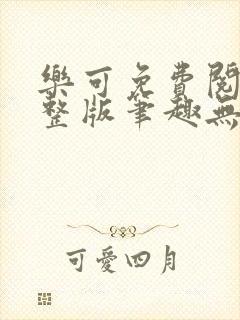 樂可免費閱
整版筆趣無
可愛四月